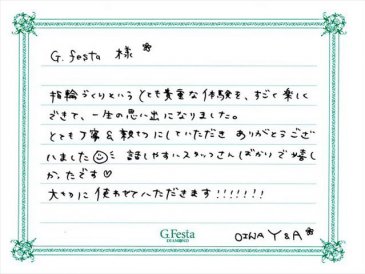 G.festa 様
指輪づくりという とても貴重な体験を、すごく楽しく
できて、一生の思い出になりました。
とても丁寧 & 親切にしていただき ありがとうござ
いました 話しやすいスタッフさんばかりで嬉し
かったです♡
大切に 使わせていただきます!!!!!!!
G.Festa
DIAMOND
OIWA Y & A